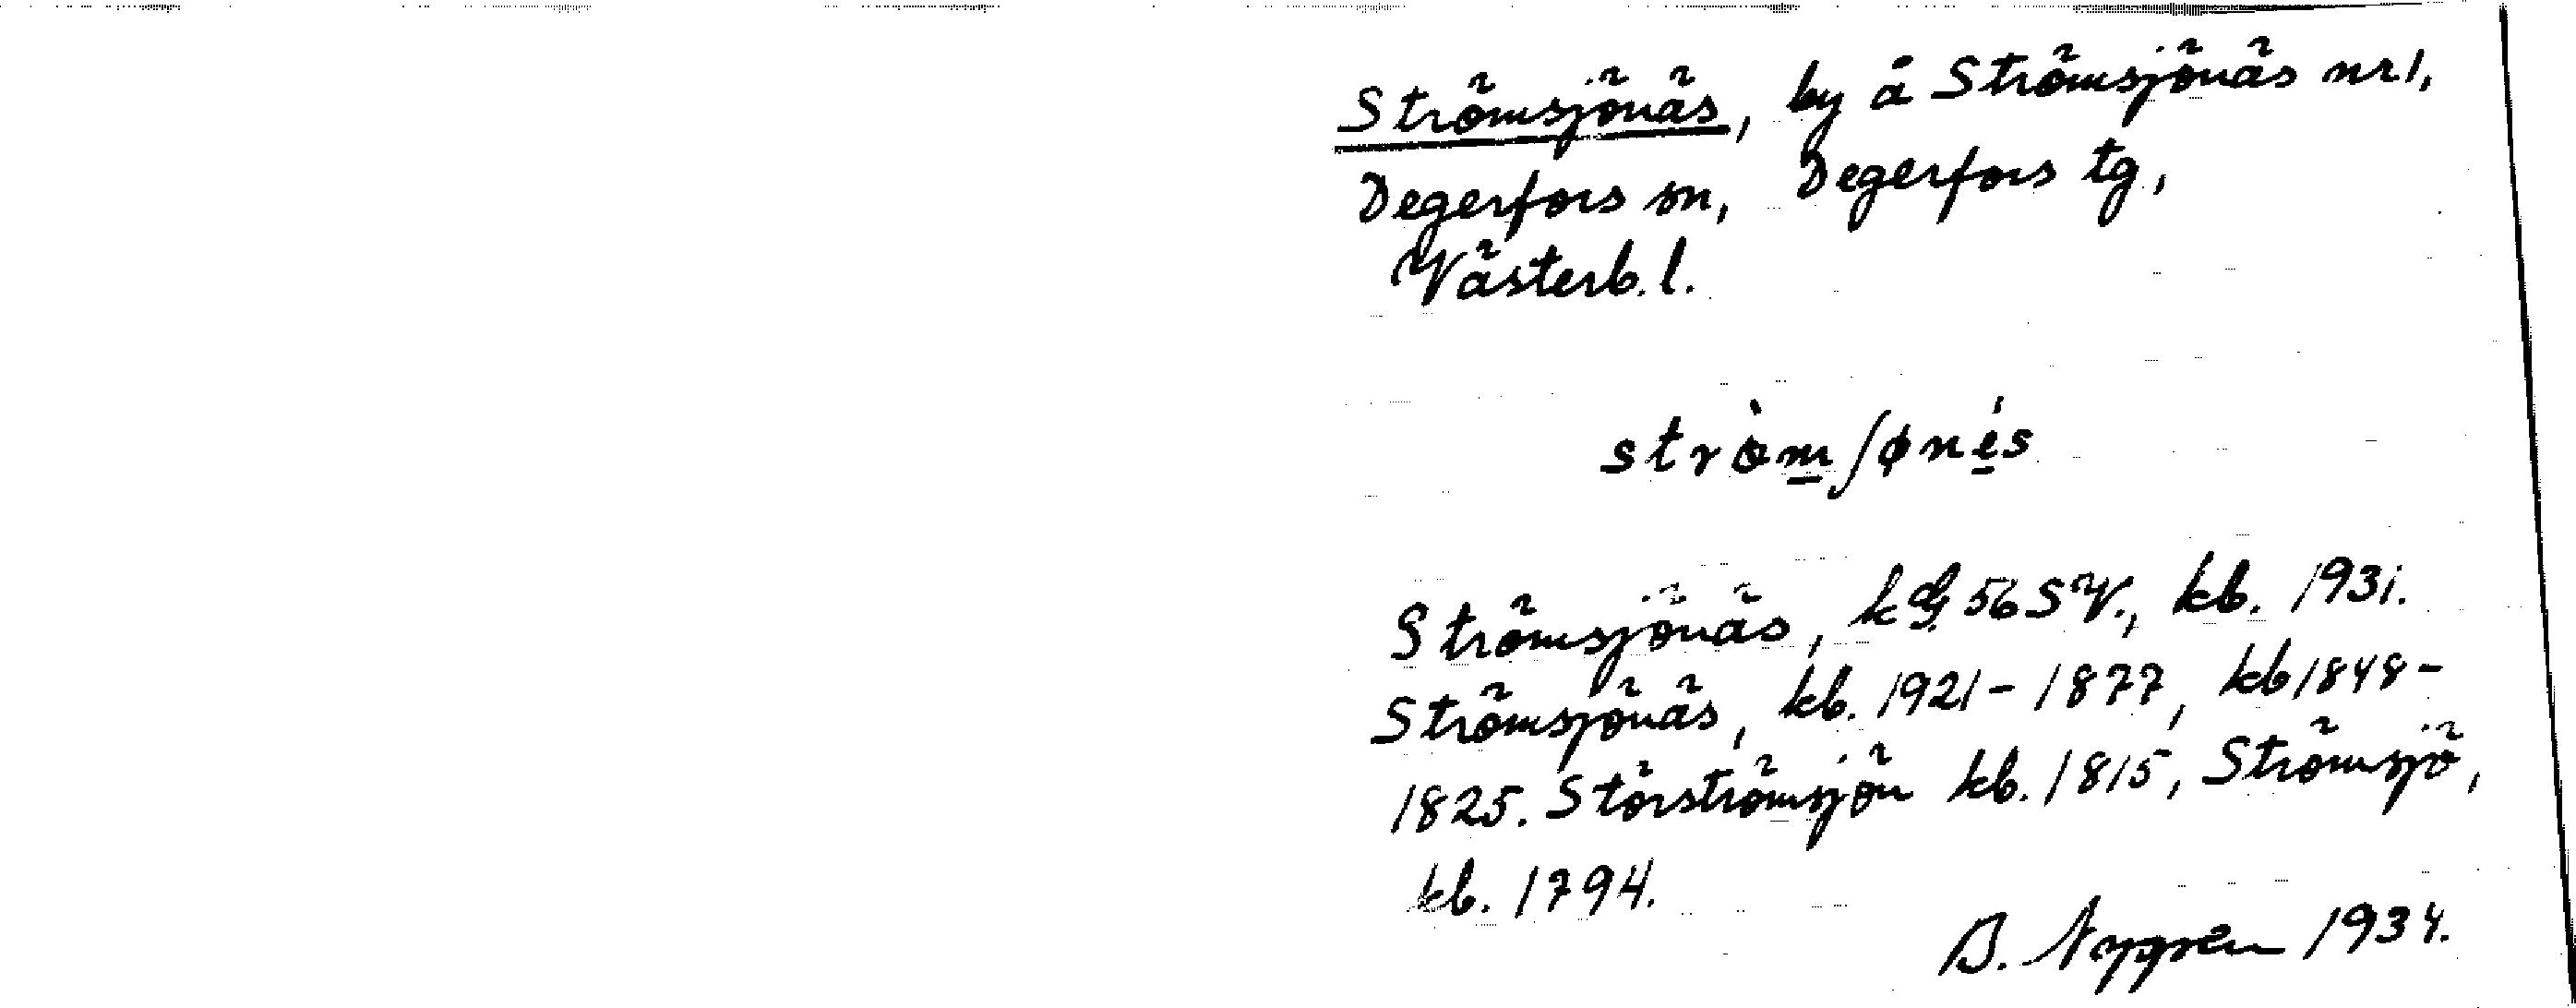 Strömsjönäs, by å Strömsjönäs nr 1,
Degerfors sn, Degerfors tg,
Västerb. l.
stròm̲ʃøne̲̍s
Strömsjönäs, kG. 56 SV., kb. 1931.
Strömsjönäs, kb. 1921-1877, kb 1848-
1825. Störströmsjön kb. 1815, Strömsjö,
kb. 1794.
B. Nygren 1934.